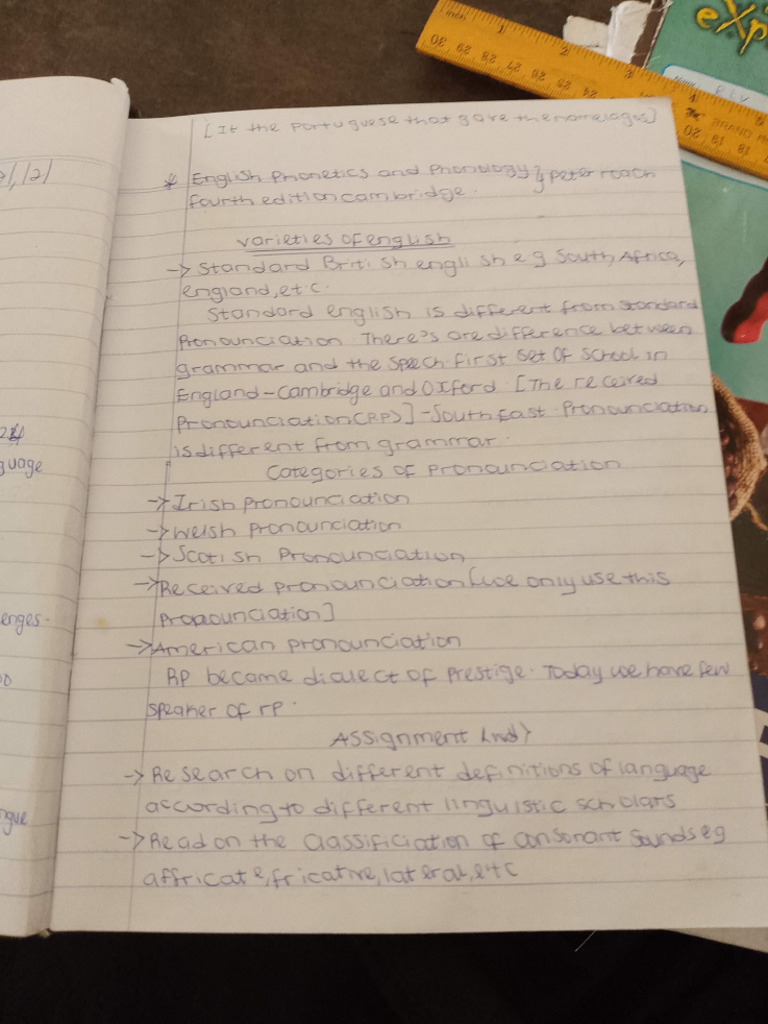 [It the Portuguese that gave the name lagos]
* English Phonetics and Phonology by peter roach
fourth edition cambridge.
varieties of english
-> Standard British english eg South Africa,
england, etc.
Standard english is different from standard
pronounciation. There's are difference between
grammar and the speech first set of school in
England - Cambridge and Oxford. [The received
Pronounciation (RP)] - South East. Pronounciation
is different from grammar.
Categories of pronounciation
-> Irish pronounciation
-> Welsh pronounciation
-> Scotish pronounciation
-> Received pronounciation [we only use this
pronounciation]
-> American pronounciation
RP became dialect of prestige. Today we have few
speaker of rp.
Assignment
-> Research on different definitions of language
according to different linguistic scholars
-> Read on the classificiation of consonant sounds eg
affricate, fricative, lateral, etc
guage
enges.
gue
inches 1 2 3 4 5
30 29 28 27 26 25 24
20 19 18
BRAND
eXp